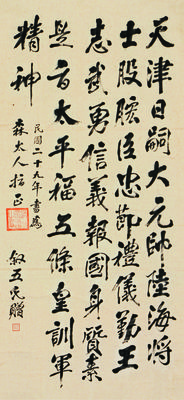 天津日嗣大元帥陸海將
士股肱臣忠節禮儀勤王
志武勇信義報國身質素
是方太平福五條皇訓軍
精神
民國二十九年書為
森大人指正
敘五氏贈